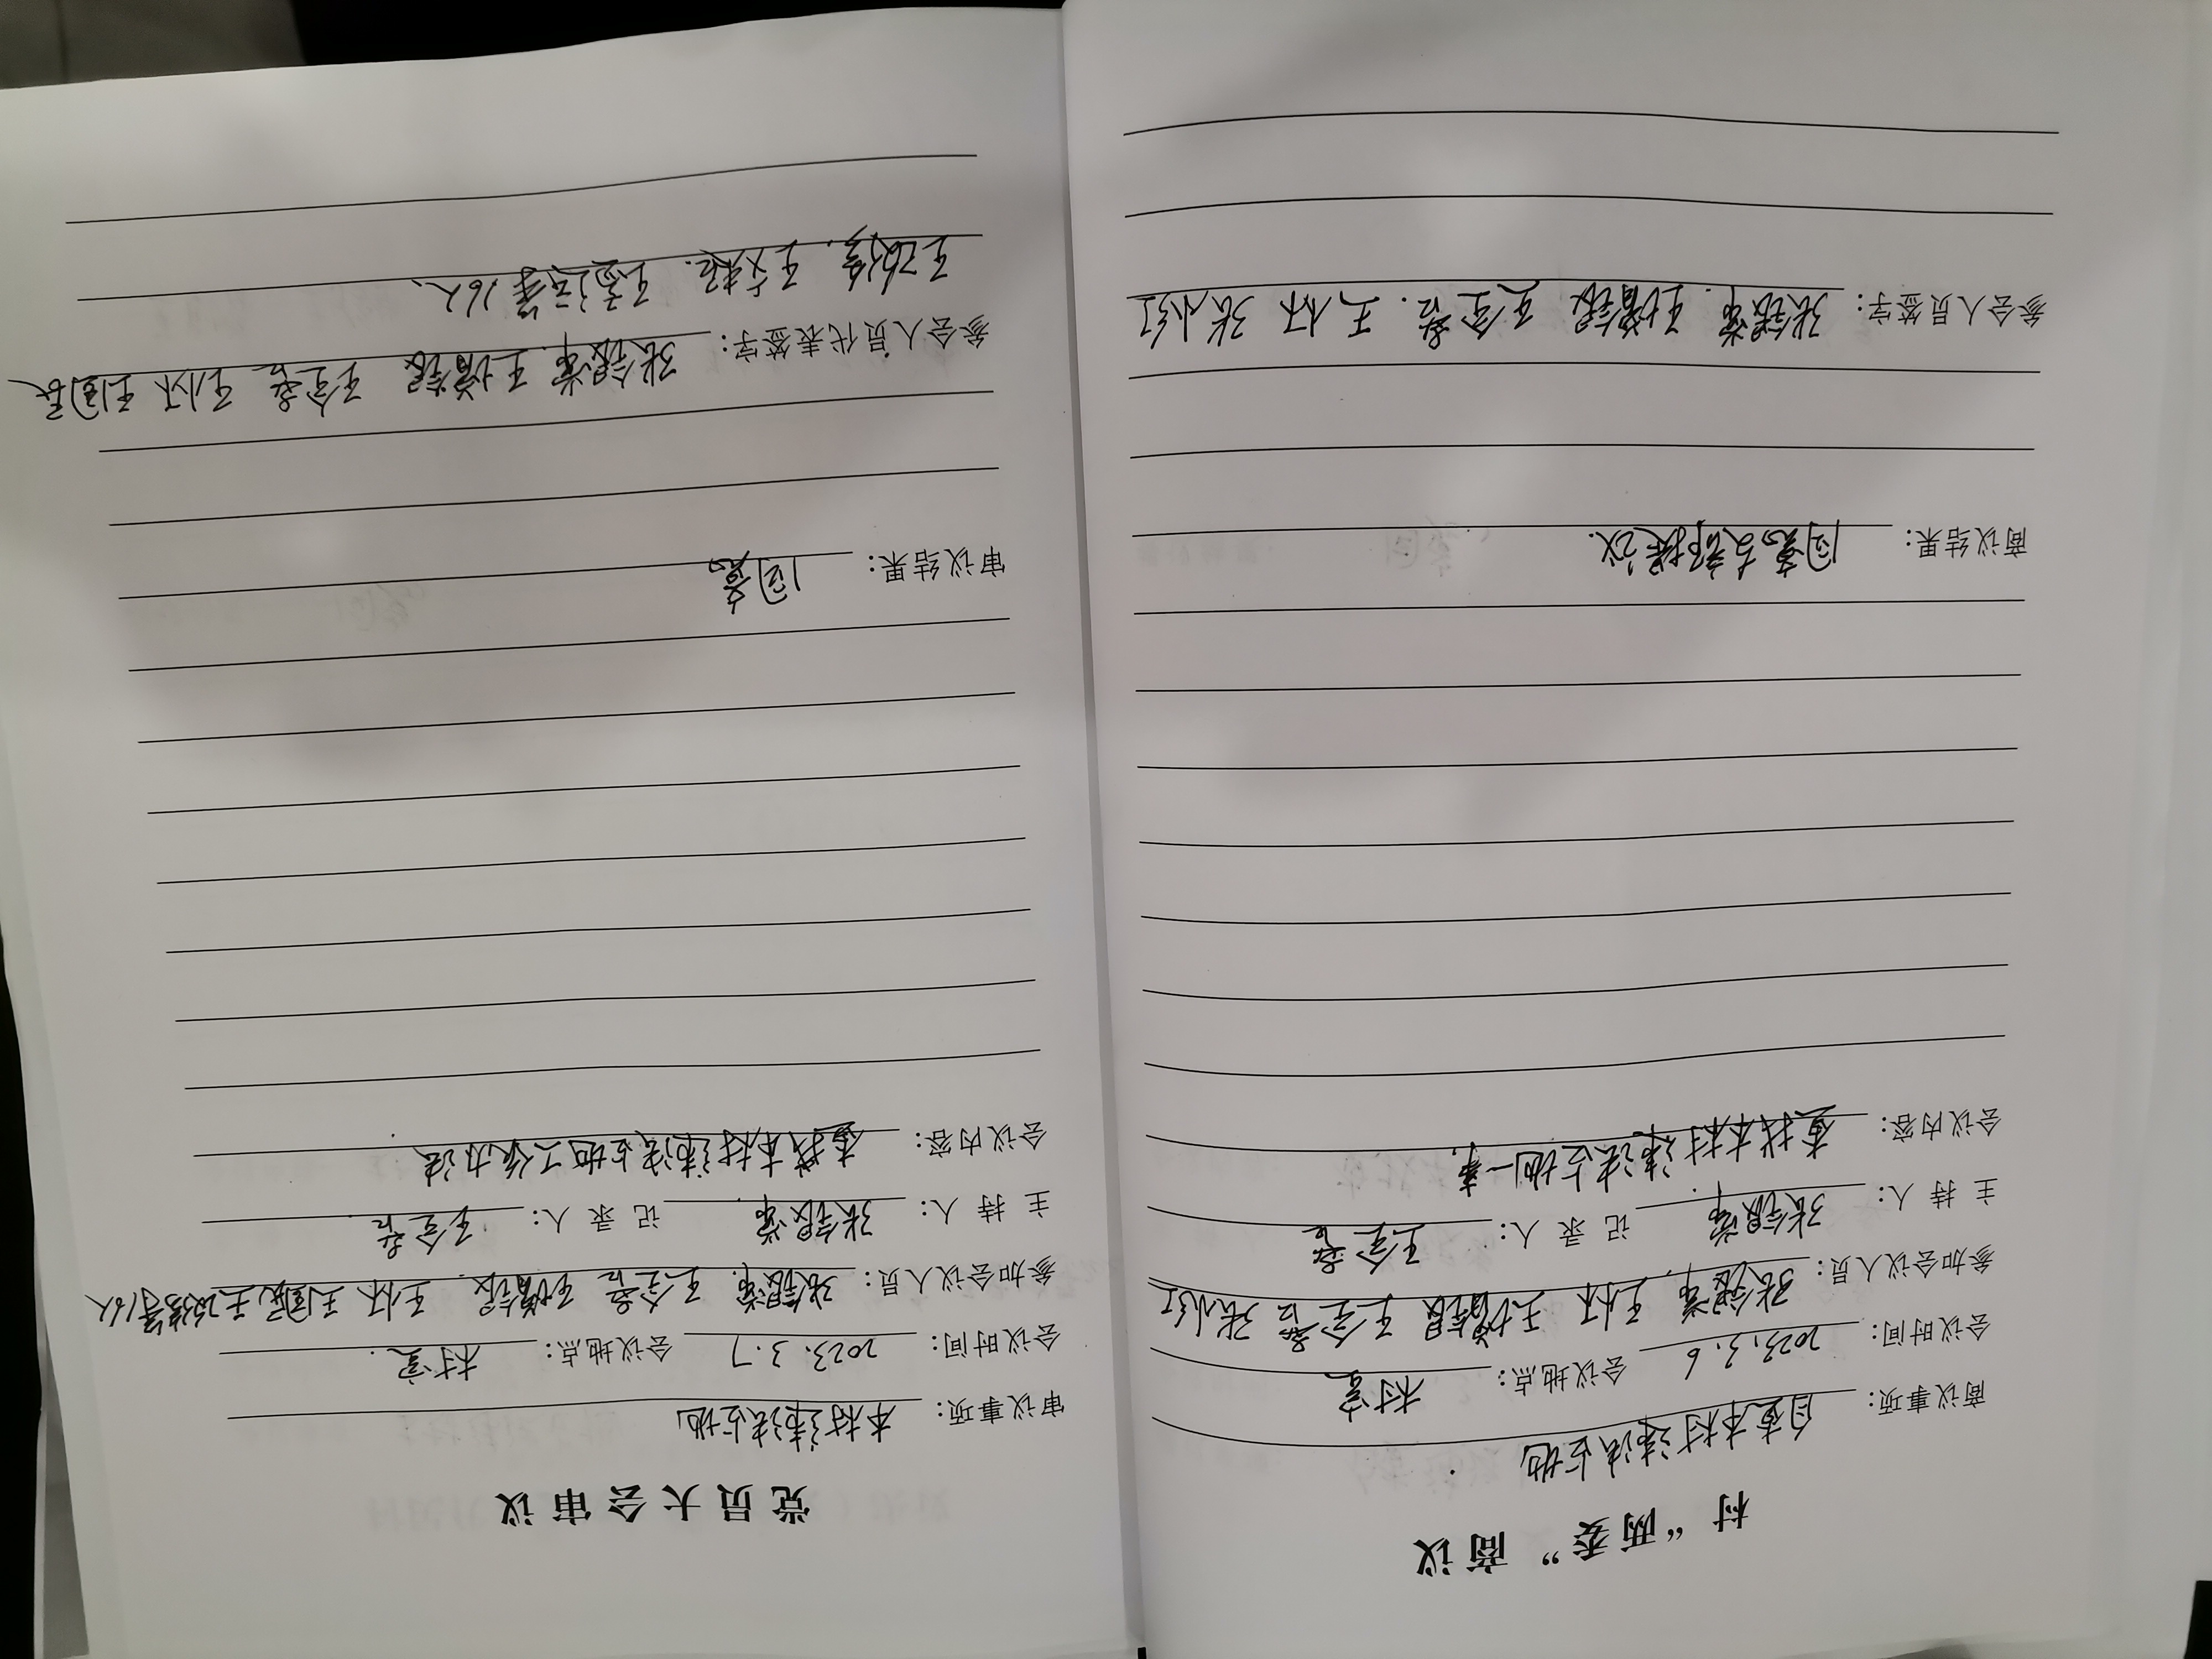 村“两委”商议
商议事项：自查本村违法占地
会议时间：2023.3.6 会议地点：村室
参加会议人员：张银常.王怀 王增银 王全喜 张小红
主持人：张银常. 记录人：王全喜
会议内容：查找本村违法占地一事.
商议结果：同意支部提议.
参会人员签字：张银常.王增银 王全喜.王怀 张小红
党员大会审议
审议事项：本村违法占地
会议时间：2023.3.7 会议地点：村室.
参加会议人员：张银常.王全喜 王增银.王怀 王国民 王改修等16人
主持人：张银常. 记录人：王全喜.
会议内容：查找本村违法占地工作办法
审议结果：同意
参会人员代表签字：张银常.王增银 王全喜 王怀 王国民
王改修.王文超.王孟运等16人、